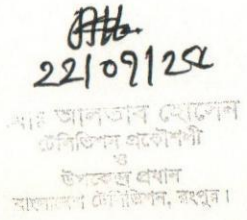 22/09/25
আলতাব হোসেন
টেলিভিশন প্রকৌশলী
ও
উপকেন্দ্র প্রধান
বাংলাদেশ টেলিভিশন, রংপুর।